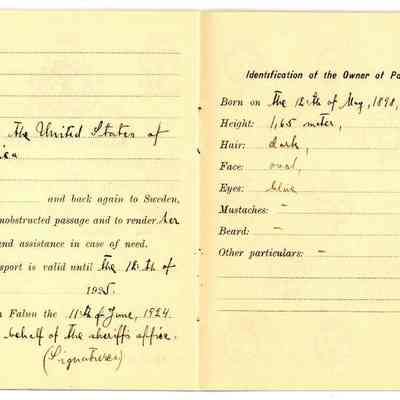 the United States of
ica
and back again to Sweden,
nobstructed passage and to render her
nd assistance in case of need.
sport is valid until the 12th of
1925.
n Falun the 11th of June, 1924.
behalf of the sheriffs office.
(Signatures)
Identification of the Owner of Pa
Born on the 12th of May, 1898,
Height: 1,65 meter,
Hair: dark,
Face: oval,
Eyes: blue
Mustaches: –
Beard: –
Other particulars: –